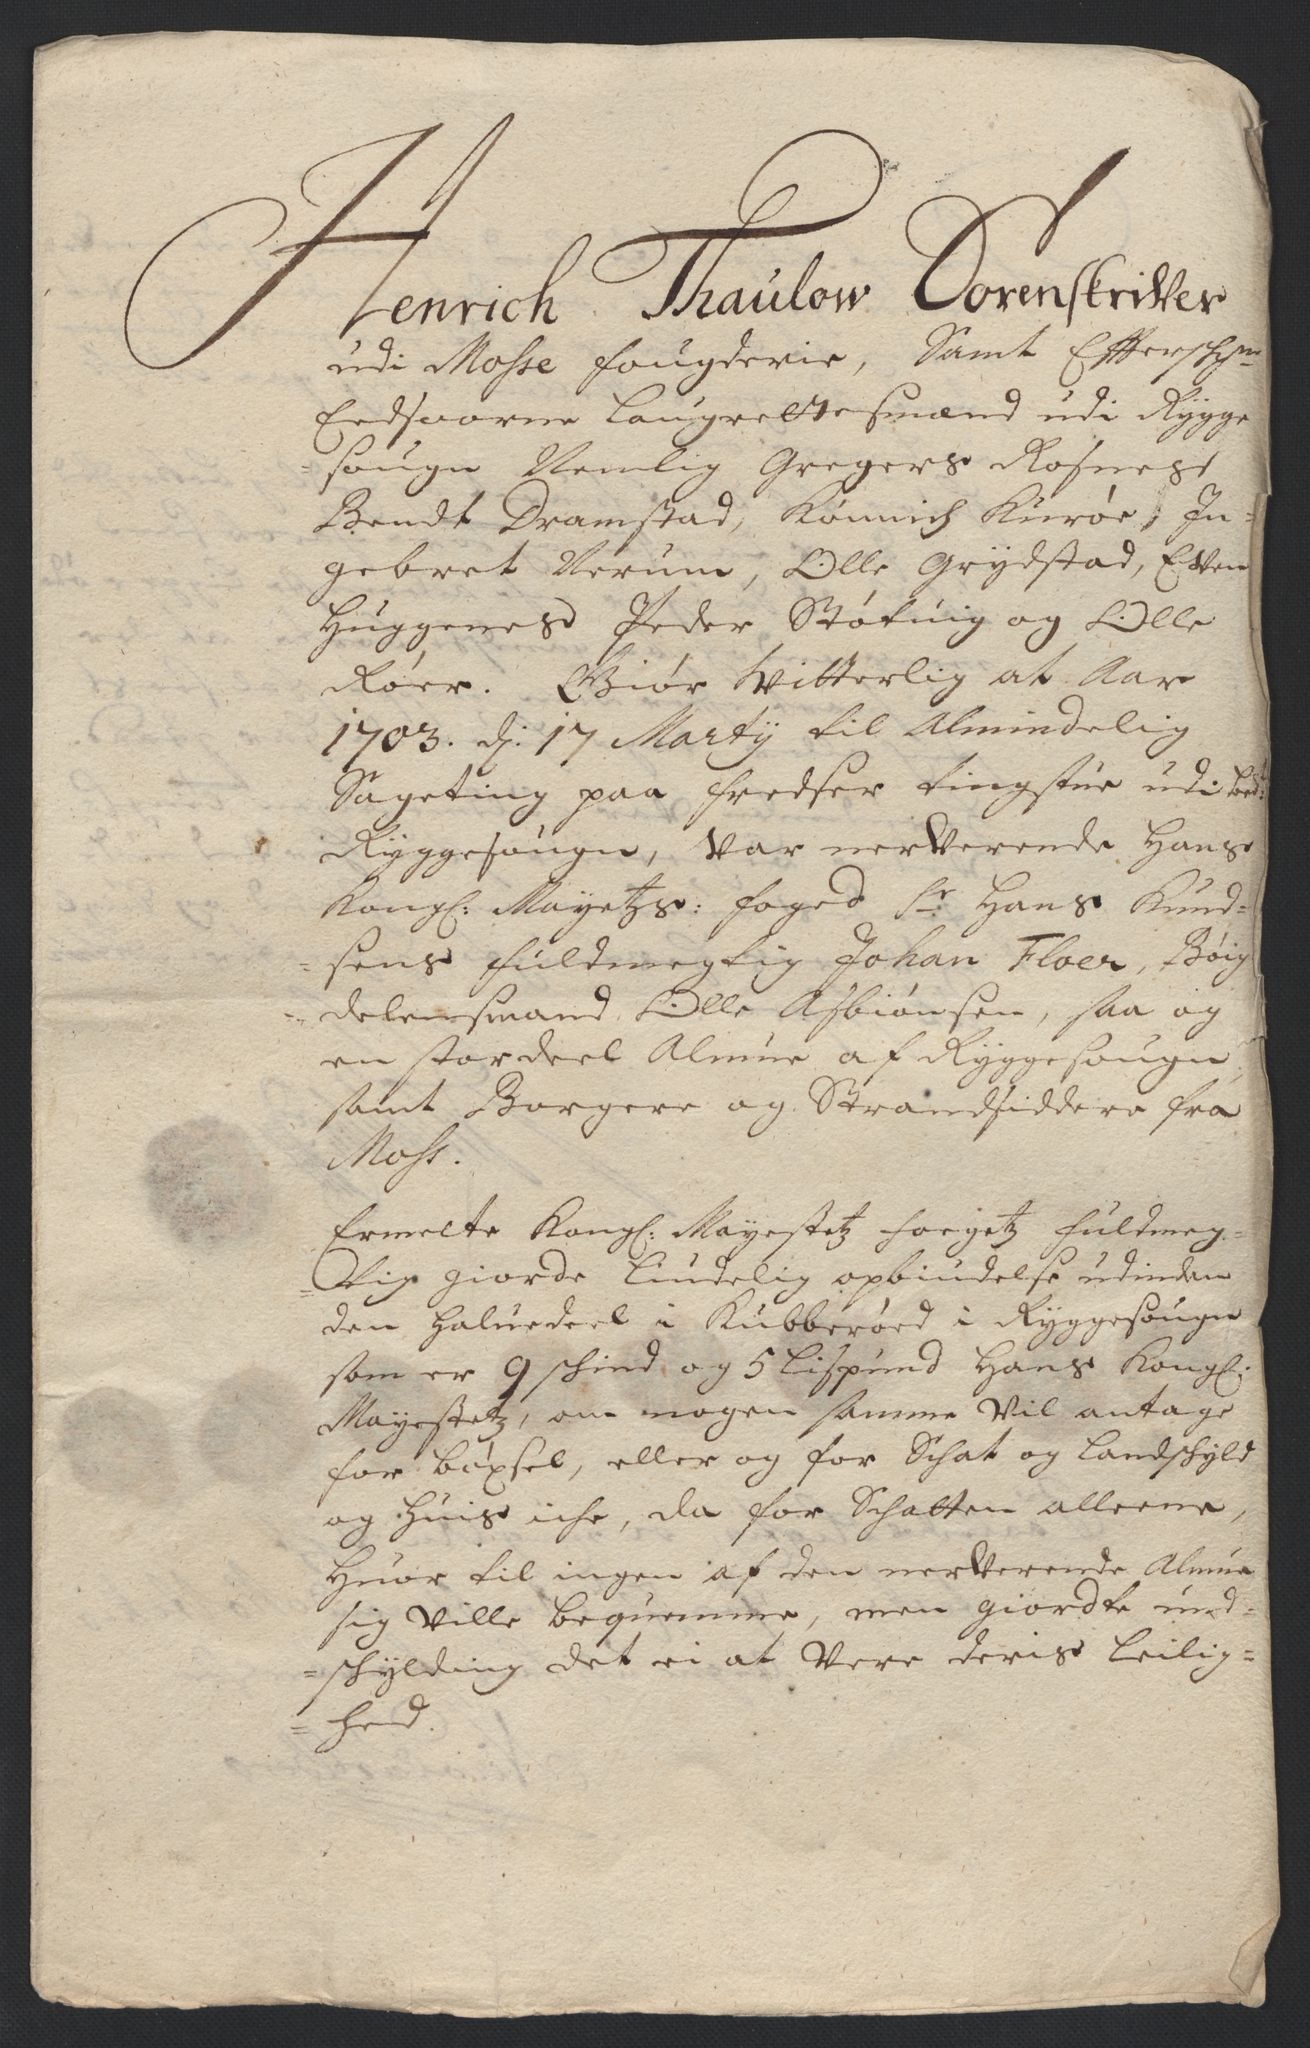 Henrich Thaulow Sorenskriver
udi Mosse fougderie, Samt Effterschr:
Eedsvorne Laugrettesmænd udi Rygge
=sougn Nemlig Gregers Rosnes
Bendt Dramstad, Kønnich Kurøe, In-
gebret Verum, Olle Grydstad, Even
Huggenes Peder Støtuig og Olle
Røer. Giør Vitterlig at Aar
1703. d: 17 Marty til Almindelig
Sageting paa Fredser tingstue udi
Ryggesougn, Var nerverende Hans
Kongl: Mayetzs: foged Sr Hans Knud=
=sens fuldmegtig Johan Floer, Bøig
delensmand Olle Asbiønsen, saa og
en stor deel Almue af Ryggesougn
samt Borgere og Strandsiddere fra
Moss.
Ermelte Kongl: Mayestetz foegetz fuldmeg=
=tig giorde liudelig opbiudelse udinden
den halvedeel i Kubberøed i Ryggesougn
som er 9 schind og 5 Lispund Hans Kongl:
Mayestetz, om nogen samme Vil antage
for bøxsel, eller og for Schat og Landschyld
og Huis iche, da for Schatten alleene,
Huor til ingen af den nerverende Almue
sig Ville bequemme, men giordte und=
=schylding det ei at Vere deris Leilig=
=hed.